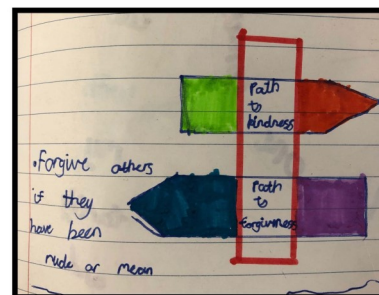 Path
to
kindness
•Forgive others
if they
have been
rude or mean
Path
to
forgiveness